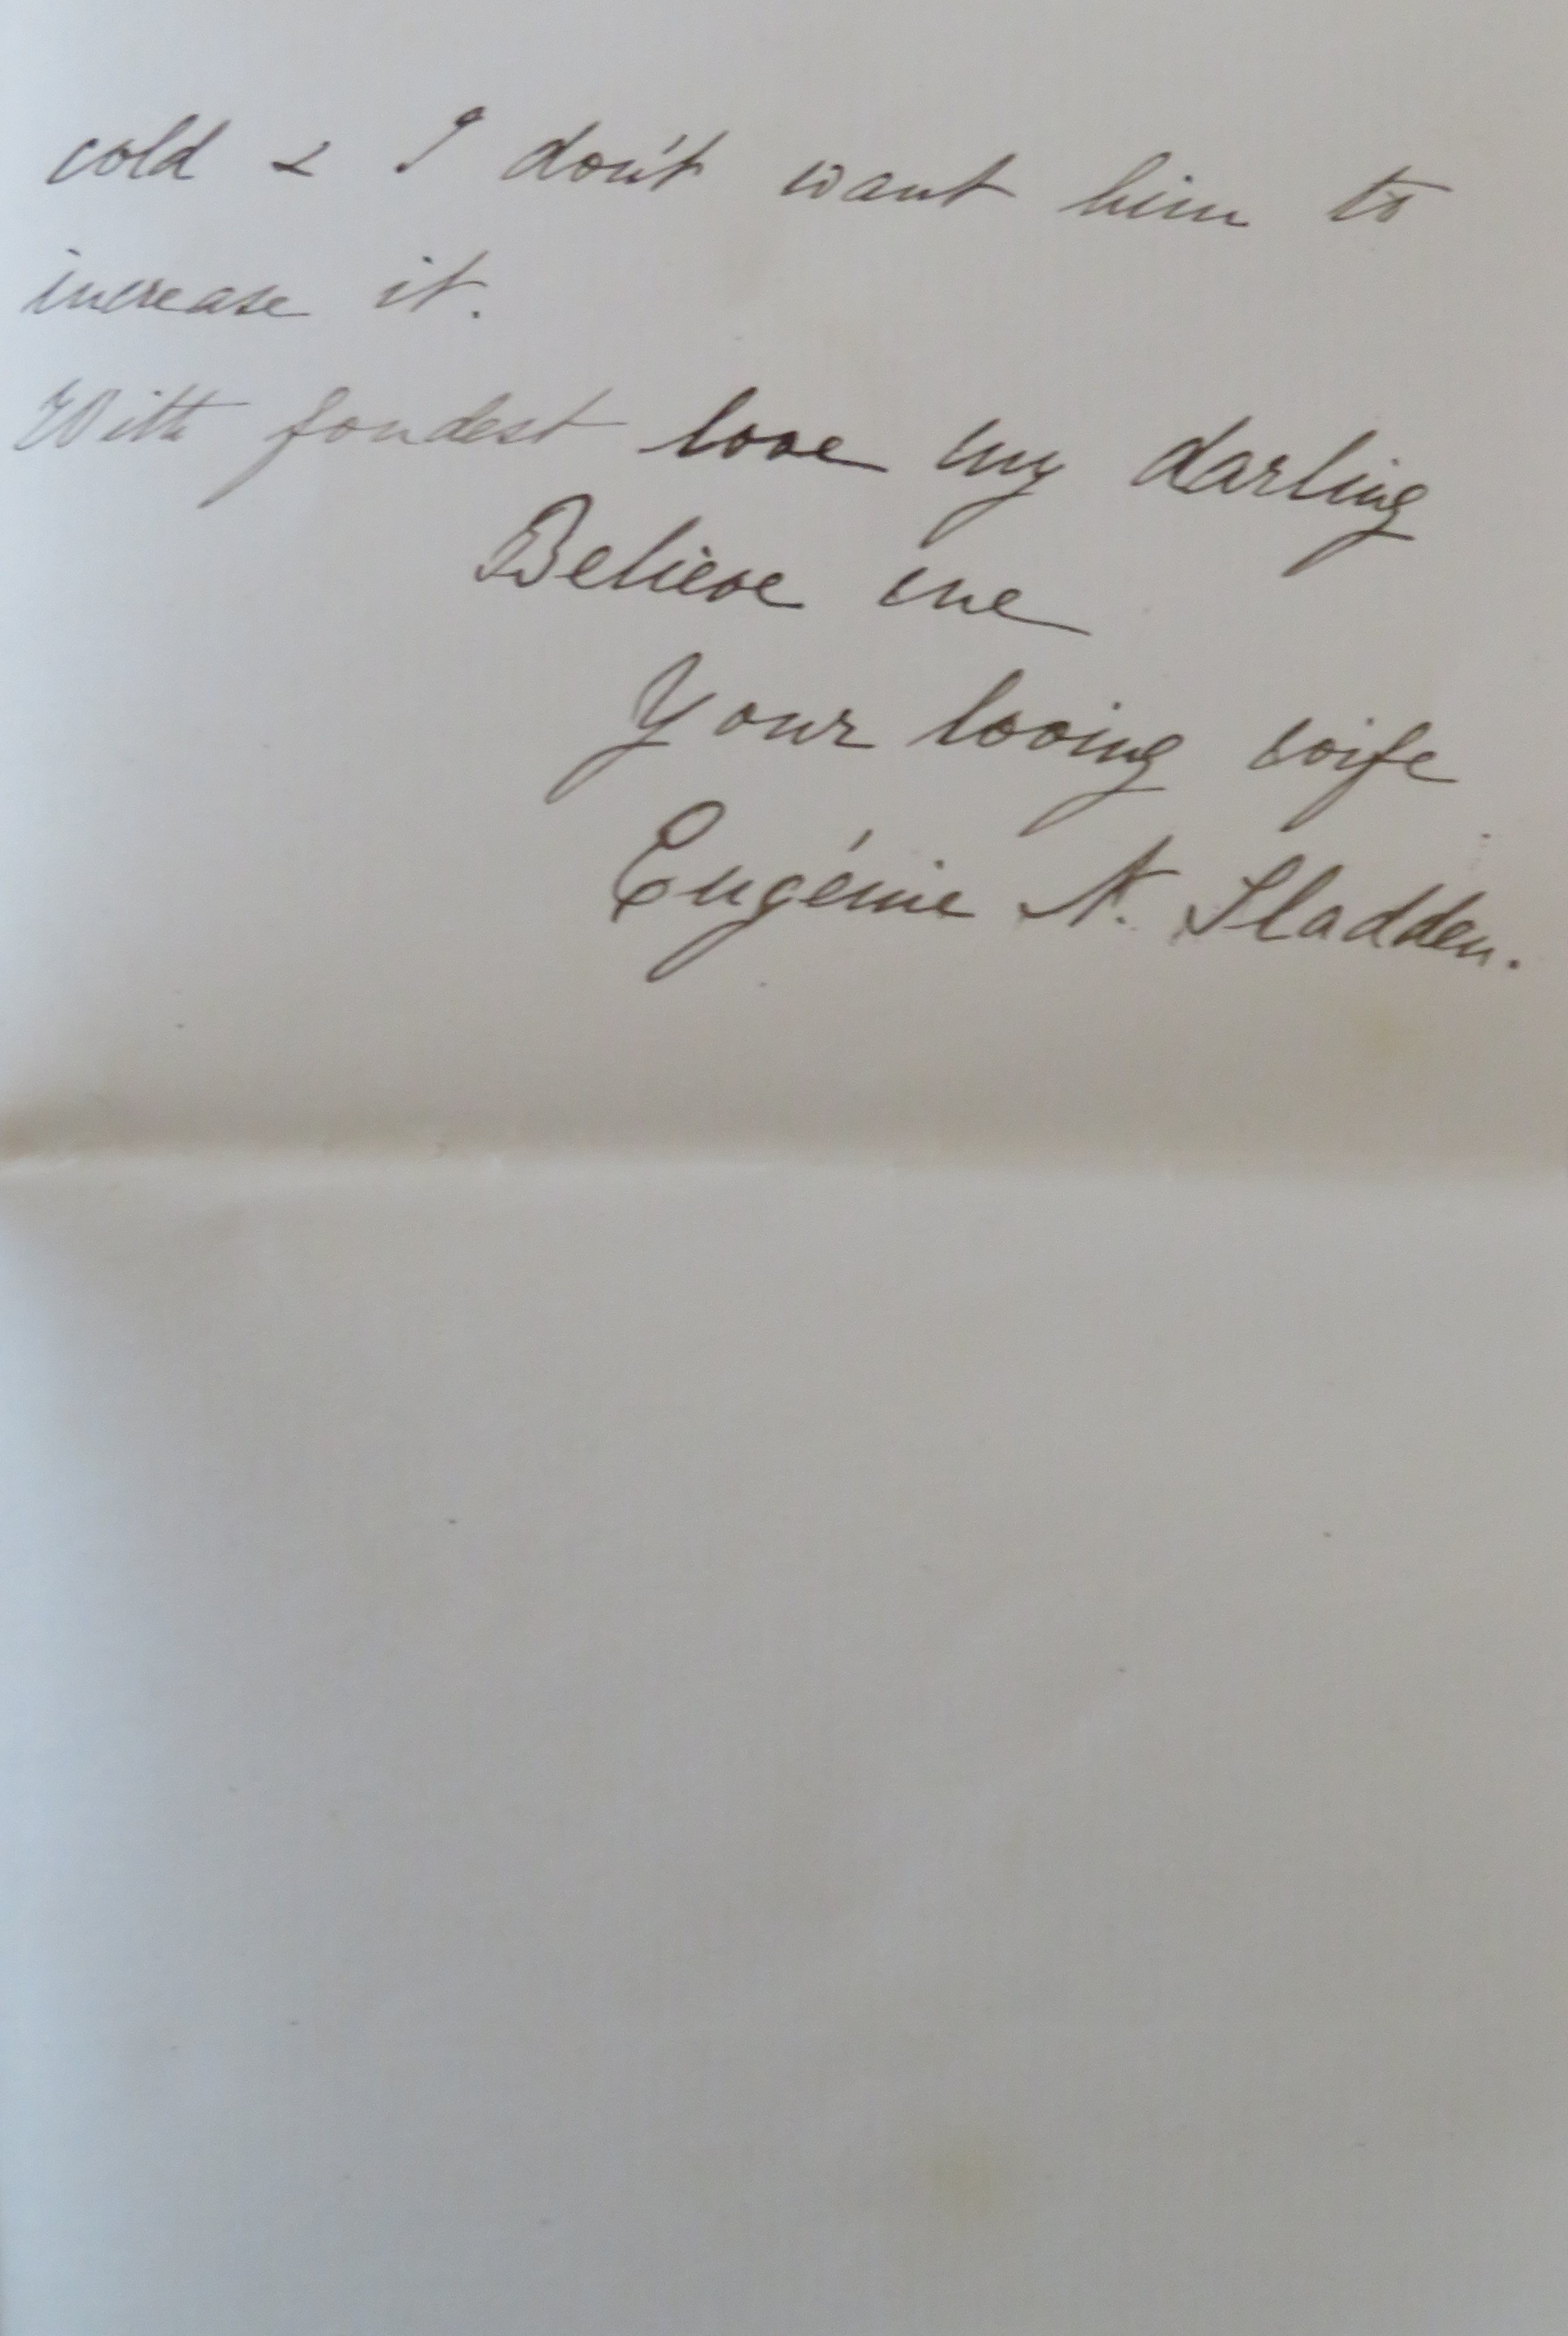 cold & I don't want him to
increase it.
With fondest love my darling
Believe me
Your loving wife
Eugénie N. Sladden.